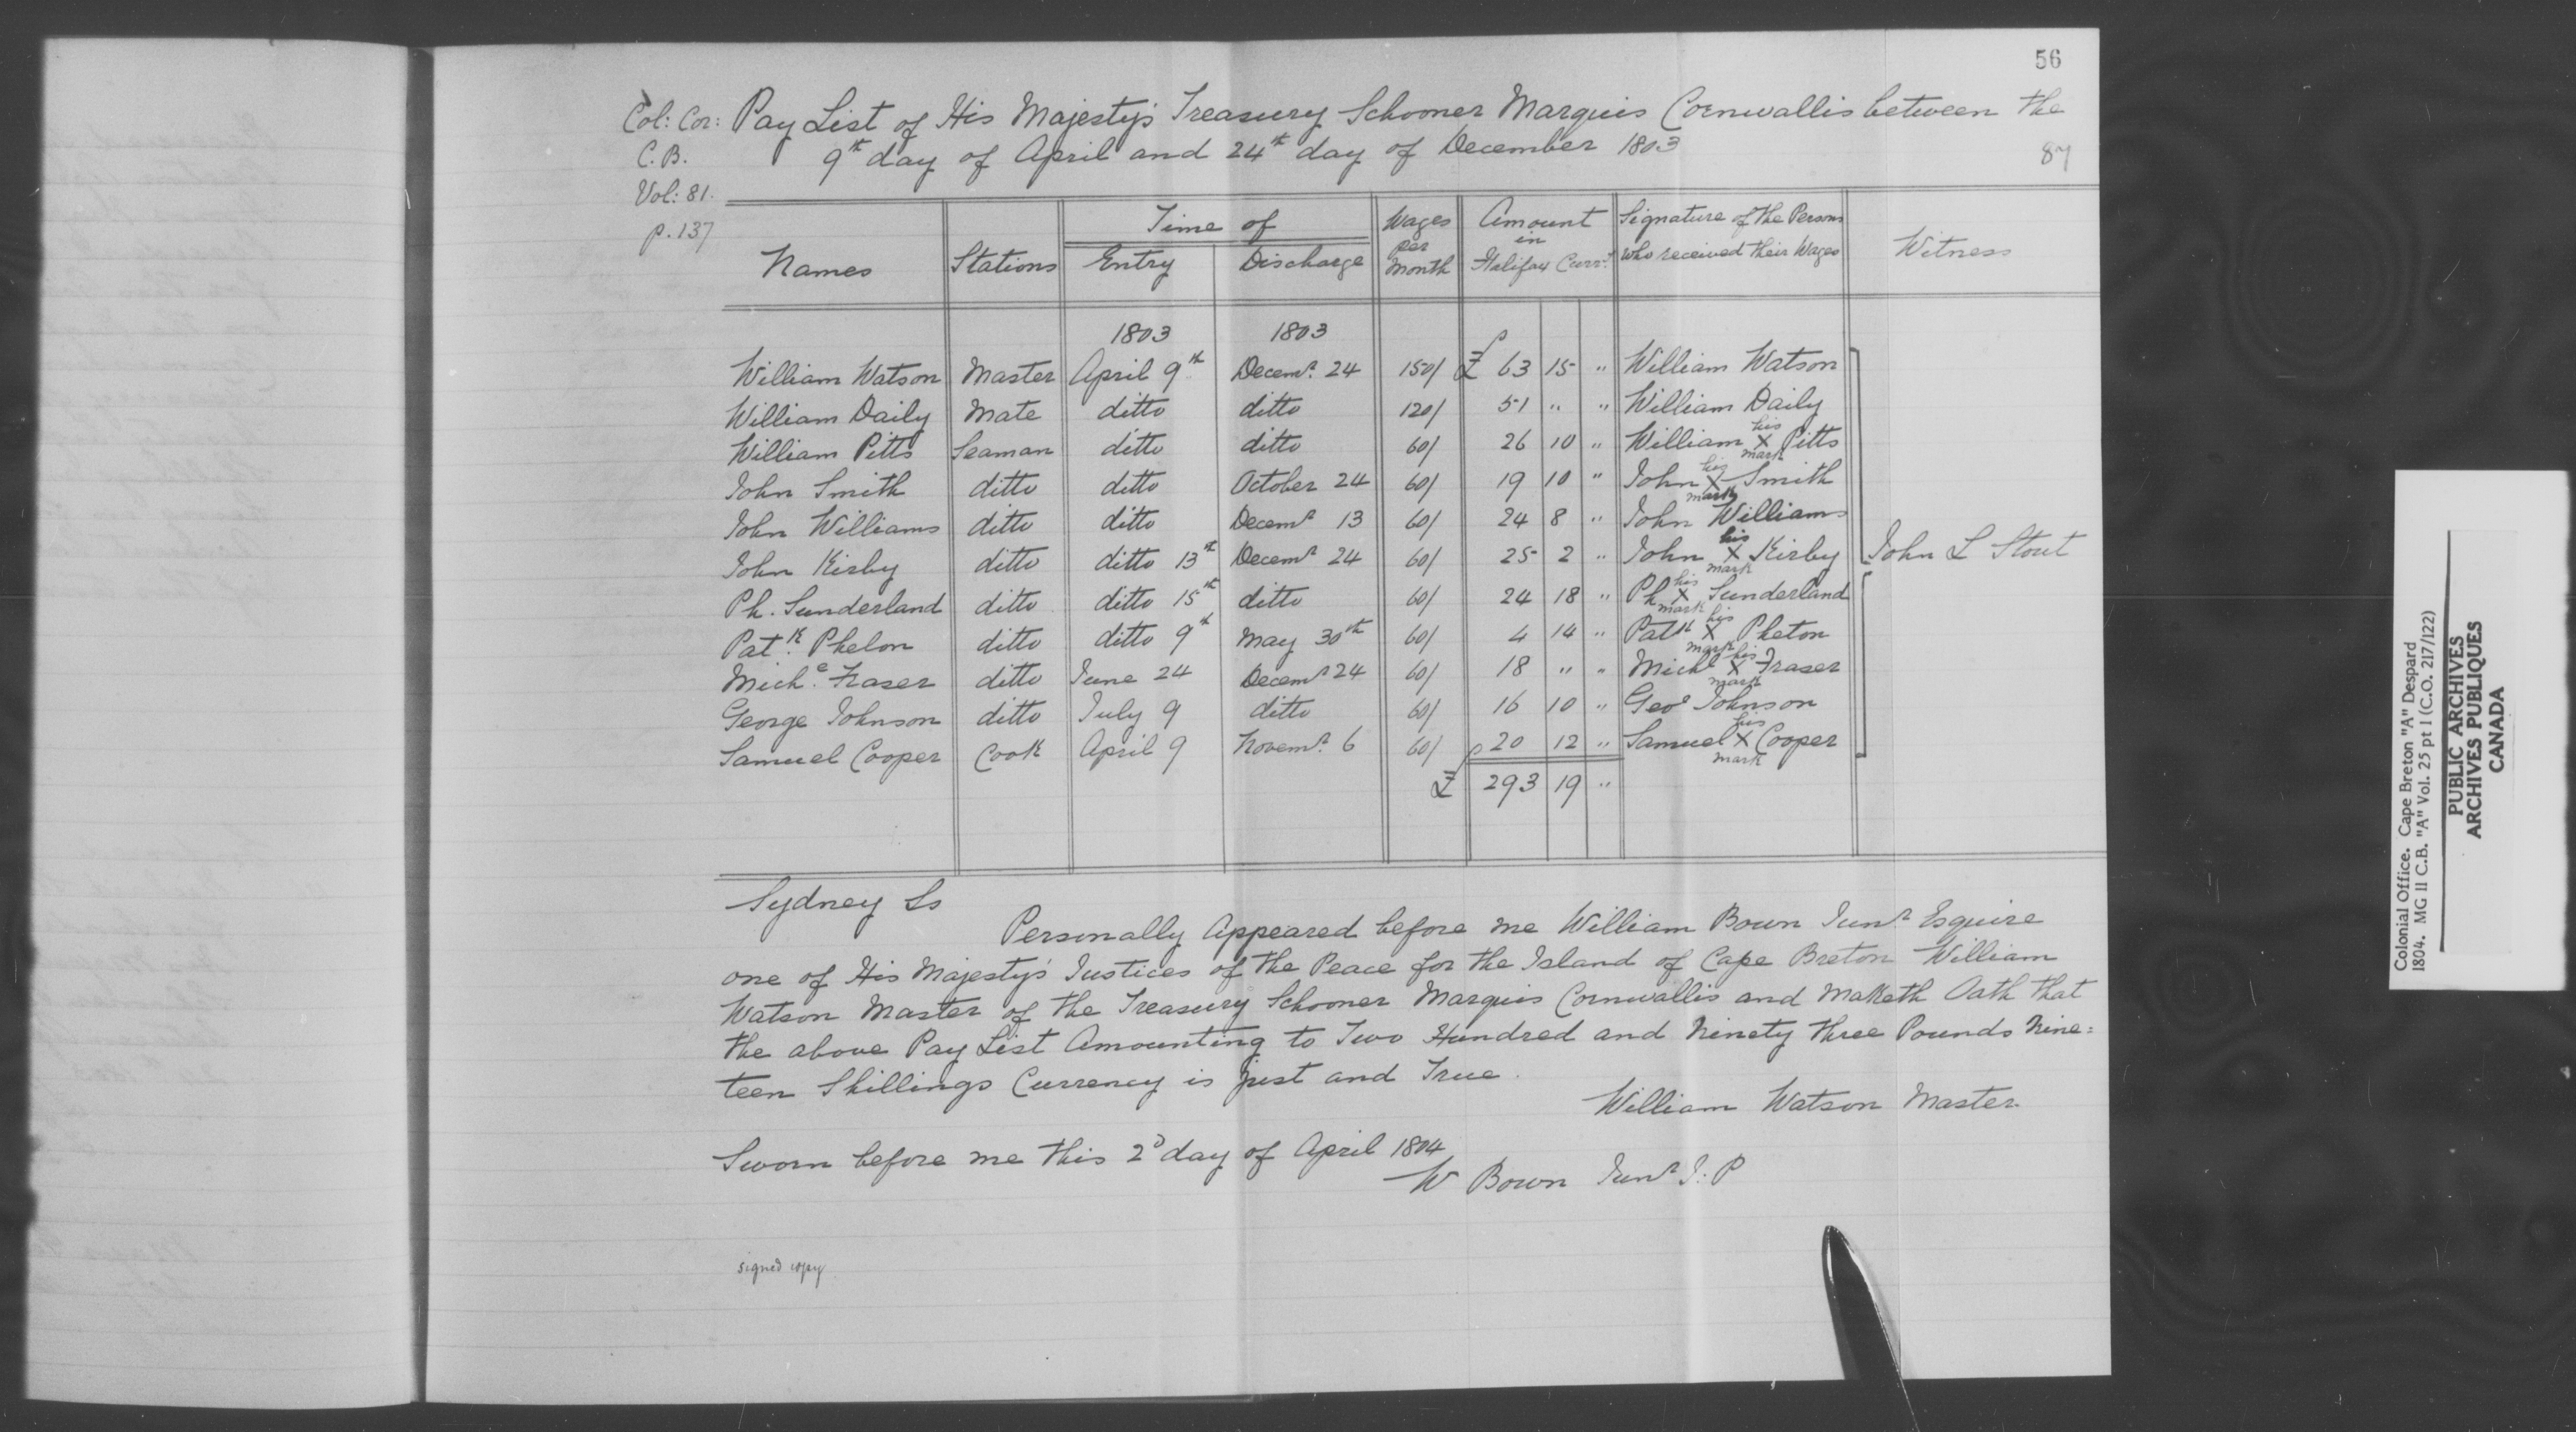 56
Col: Cor: Pay List of His Majesty's Treasury Schooner Marquis Cornwallis between the
C.B. 9th day of April and 24th day of December 1803 87
Vol: 81.
p. 137
Names | Stations | Time of Entry | Time of Discharge | Wages per Month | Amount in Halifax Curry. | Signature of the Persons who received their Wages | Witness
1803 1803
William Watson | Master | April 9th | Decemr. 24 | 150/ | £ 63 | 15 | " | William Watson
William Daily | Mate | ditto | ditto | 120/ | 51 | " | " | William Daily
William Pitts | Seaman | ditto | ditto | 60/ | 26 | 10 | " | William his X mark Pitts
John Smith | ditto | ditto | October 24 | 60/ | 19 | 10 | " | John his X mark Smith
John Williams | ditto | ditto | Decemr 13 | 60/ | 24 | 8 | " | John Williams
John Kirby | ditto | ditto 13th | Decemr 24 | 60/ | 25 | 2 | " | John his X mark Kirby | John L Stout
Ph. Sunderland | ditto | ditto 15th | ditto | 60/ | 24 | 18 | " | Ph his X mark Sunderland
Patk. Phelon | ditto | ditto 9th | May 30th | 60/ | 4 | 14 | " | Patk his X mark Pheton
Miche. Fraser | ditto | June 24 | Decemr 24 | 60/ | 18 | " | " | Michl his X mark Fraser
George Johnson | ditto | July 9 | ditto | 60/ | 16 | 10 | " | Geoe Johnson
Samuel Cooper | Cook | April 9 | Novemr. 6 | 60/ | 20 | 12 | " | Samuel his X mark Cooper
£ 293 | 19 | "
Sydney Ss
Personally Appeared before me William Bown Junr Esquire
one of His Majesty's Justices of the Peace for the Island of Cape Breton William
Watson Master of the Treasury Schooner Marquis Cornwallis and Maketh Oath that
the above Pay List Amounting to Two Hundred and Ninety three Pounds Nine=
teen Shillings Currency is just and True.
William Watson Master.
Sworn before me this 2d day of April 1804
W Bown Junr J.P
signed copy
Colonial Office. Cape Breton "A" Despard
1804. MG 11 C.B. "A" Vol. 25 pt 1 (C.O. 217/122)
PUBLIC ARCHIVES
ARCHIVES PUBLIQUES
CANADA